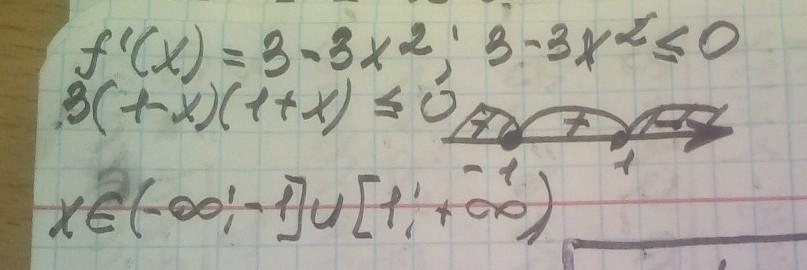 f'(x) = 3 - 3x²; 3 - 3x² ≤ 0
3(1-x)(1+x) ≤ 0
+
-1 1
x∈(-∞; -1]∪[1; +∞)